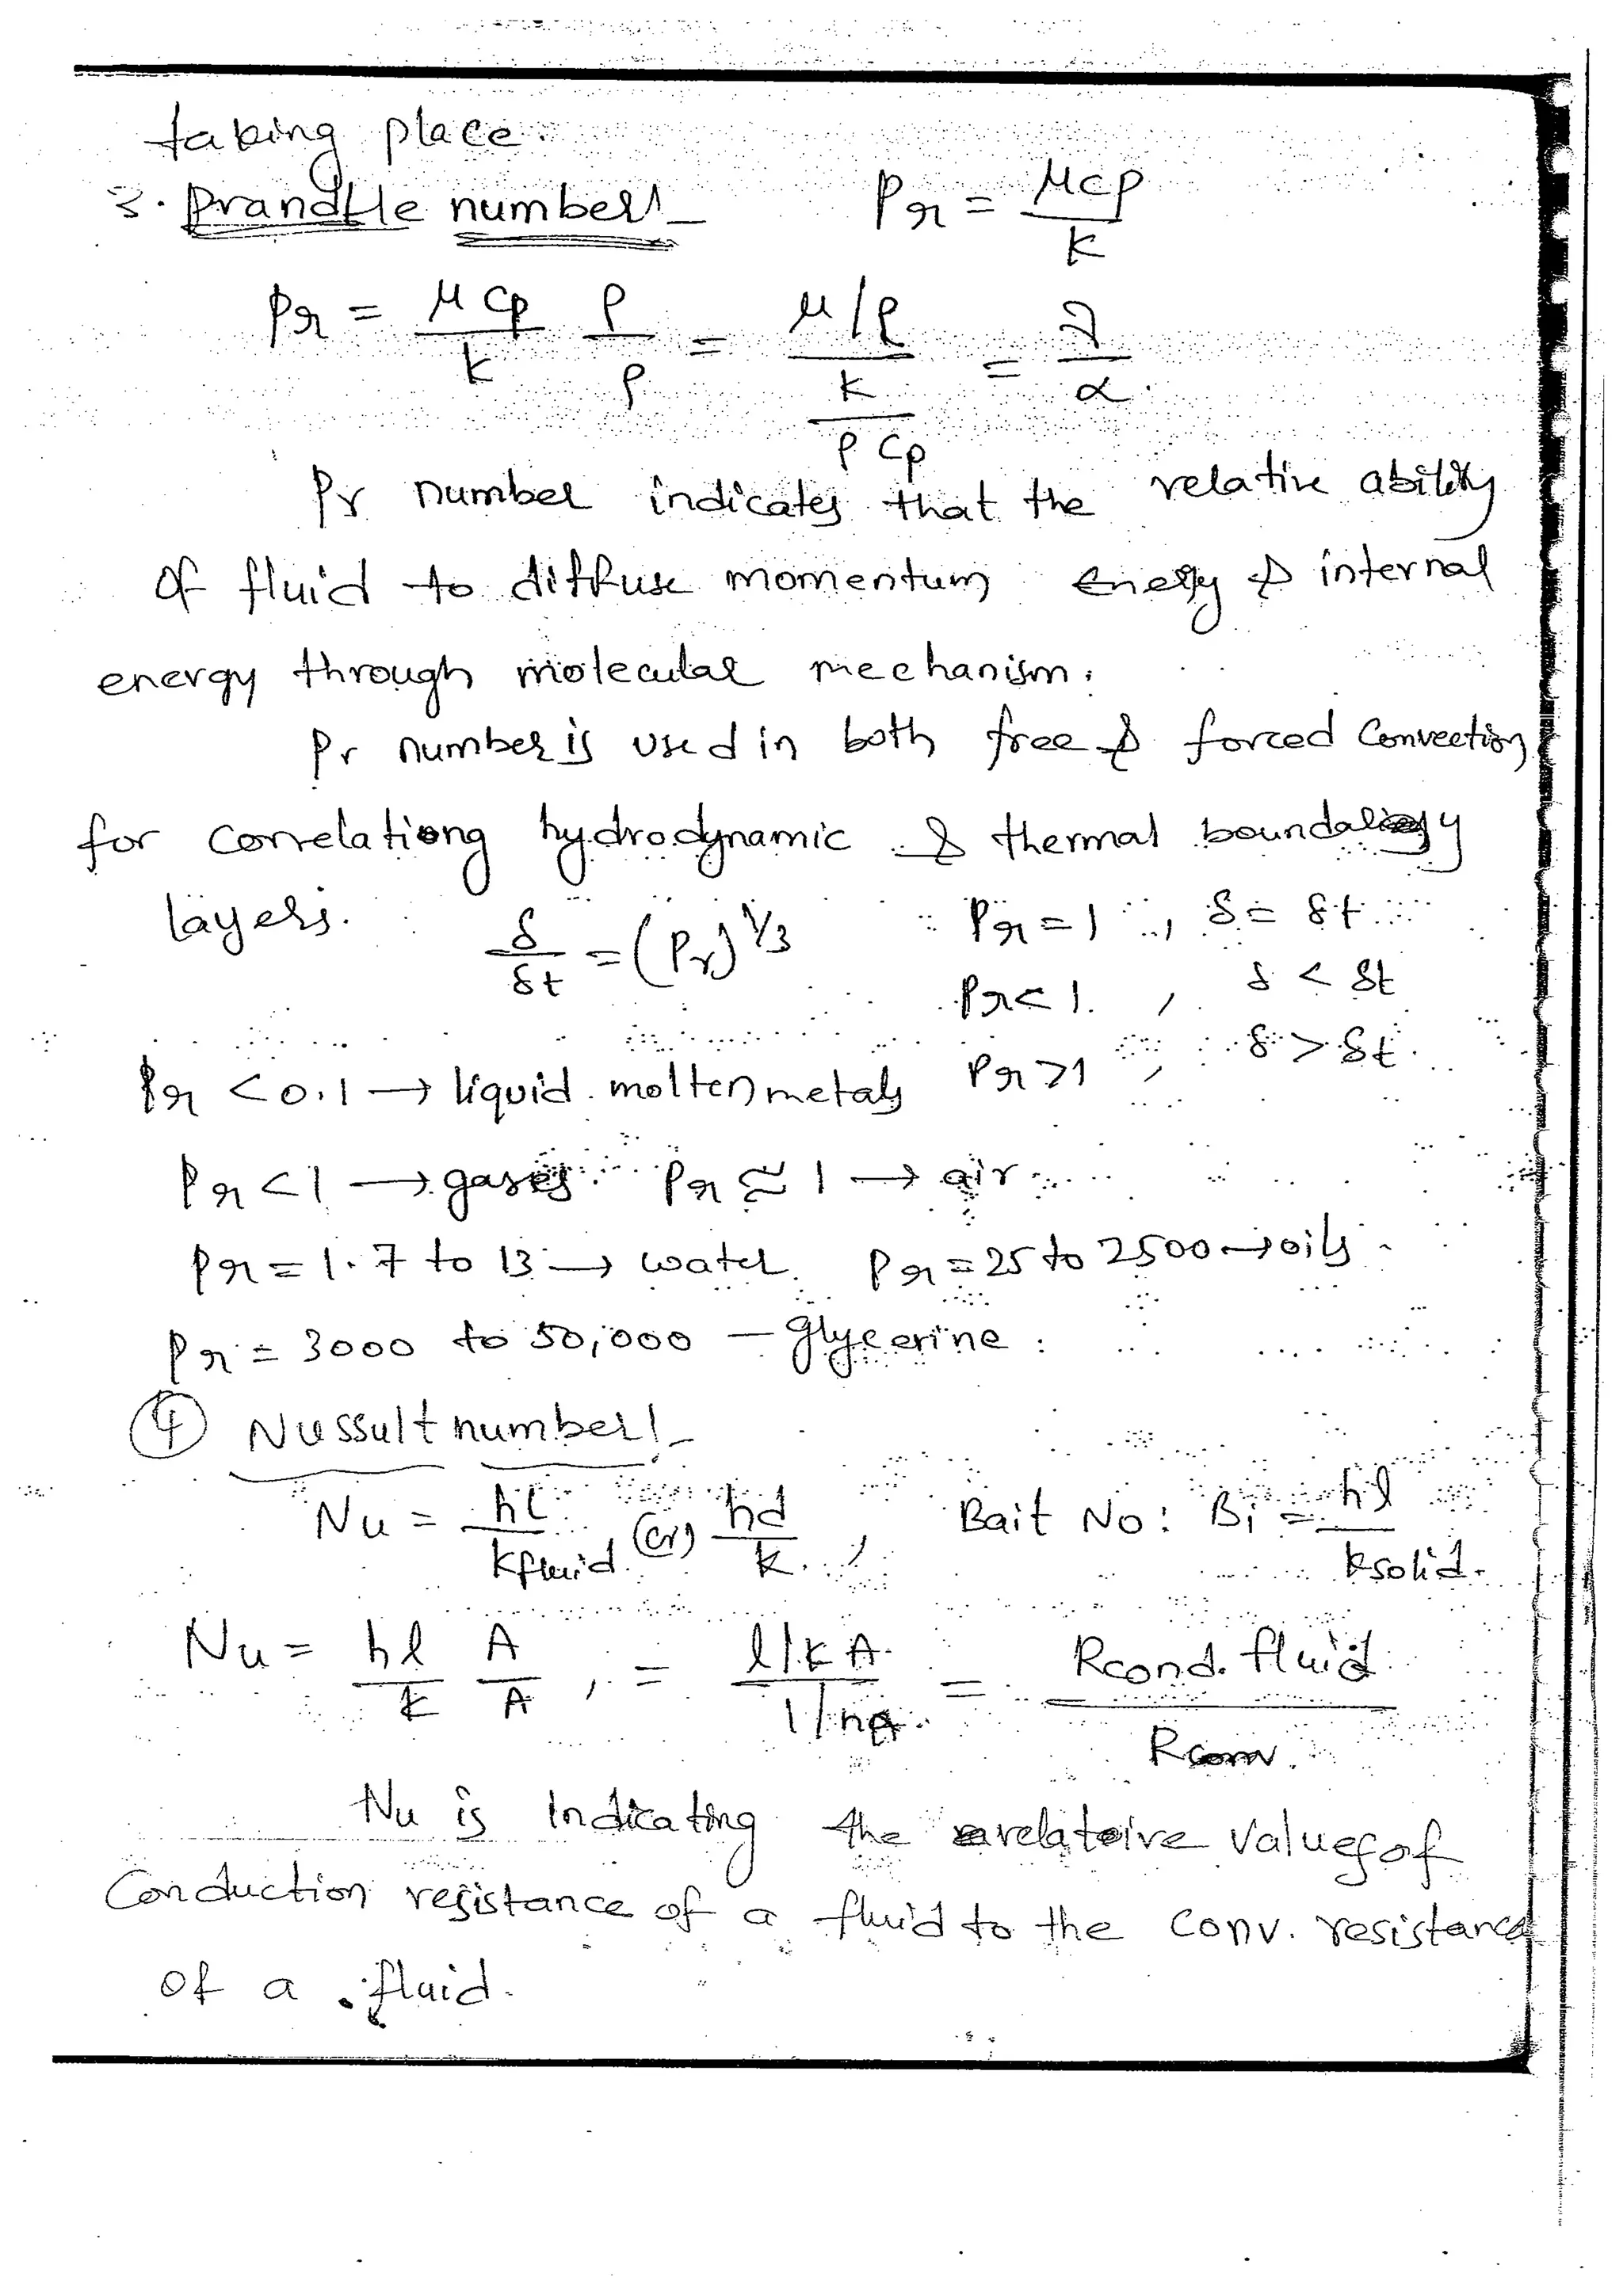 taking place.
3. Prandtle number:- Pr = μcp / k
Pr = μ cp / k ρ / ρ = μ/ρ / k / ρ cp = ν / α
Pr number indicates that the relative ability
of fluid to diffuse momentum energy & internal
energy through molecular mechanism.
Pr number is used in both free & forced Convection
for correlationg hydrodynamic & thermal boundary
layers. δ / δt = (Pr)^1/3 Pr = 1 , δ = δt
Pr < 1. , δ < δt
Pr < 0.1 → liquid molten metals Pr > 1 , δ > δt.
Pr < 1 → gases. Pr ≈ 1 → air
Pr = 1.7 to 13 → water. Pr = 25 to 2500 → oils.
Pr = 3000 to 50,000 — glycerine.
④ Nussult number:-
Nu = hl / kfluid (or) hd / k. , Bait No: Bi = hl / ksolid.
Nu = hl / k A / A , = l/kA / 1/hA. = Rcond. fluid / Rconv.
Nu is Indicating the relatoive values of
Conduction resistance of a fluid to the conv. resistance
of a fluid.